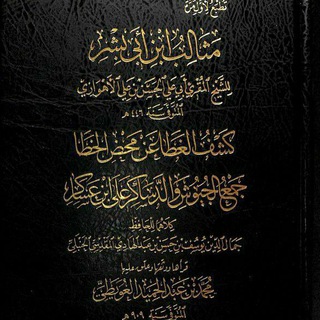 تطبع لأول مرة
مثالب ابن أبي بشر
للشيخ المقرئ أبي علي الحسن بن علي الأهوازي
المتوفى سنة ٤٤٦ هـ
كشف الغطا عن محض الخطا
جمع الجيوش والدساكر على ابن عساكر
كلاهما للحافظ
جمال الدين يوسف بن حسن بن عبد الهادي المقدسي الحنبلي
المتوفى سنة ٩٠٩ هـ
قرأها وعلق عليها
محمد بن عبد الحميد